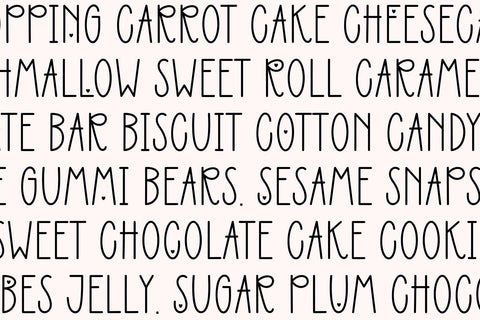 OPPING CARROT CAKE CHEESECA
HMALLOW SWEET ROLL CARAME
ATE BAR BISCUIT COTTON CANDY
E GUMMI BEARS. SESAME SNAPS
SWEET CHOCOLATE CAKE COOKI
BES JELLY. SUGAR PLUM CHOCO